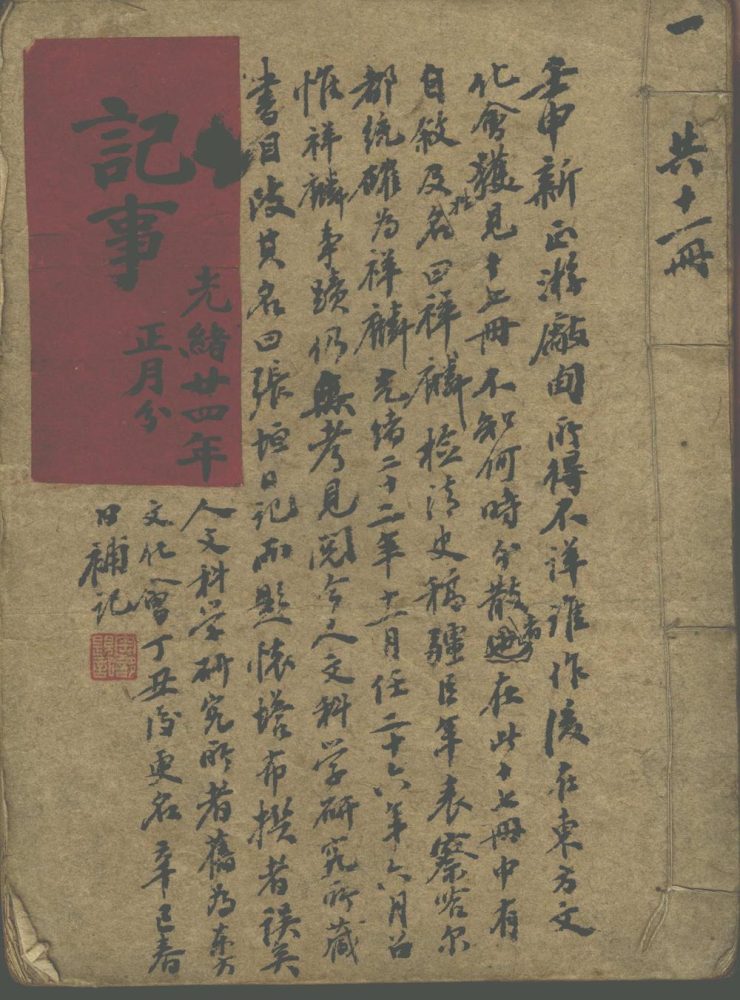 一
共十一冊
壬申新正游廠甸所得不詳誰作後在東方文
化會獲見十七冊不知何時分散者在此十七冊中有
自敘及名姓曰祥麟檢清史稿疆臣年表察哈尔
都統確為祥麟光緒二十二年十一月任二十六年六月召
惟祥麟事蹟仍無考見閱今人文科学研究所藏
書目改其名曰張垣日記而題懷塔布撰者誤矣
人文科学研究所者舊為東方
文化會丁丑後更名辛巳春
日補記
記事
光緒廿四年
正月分